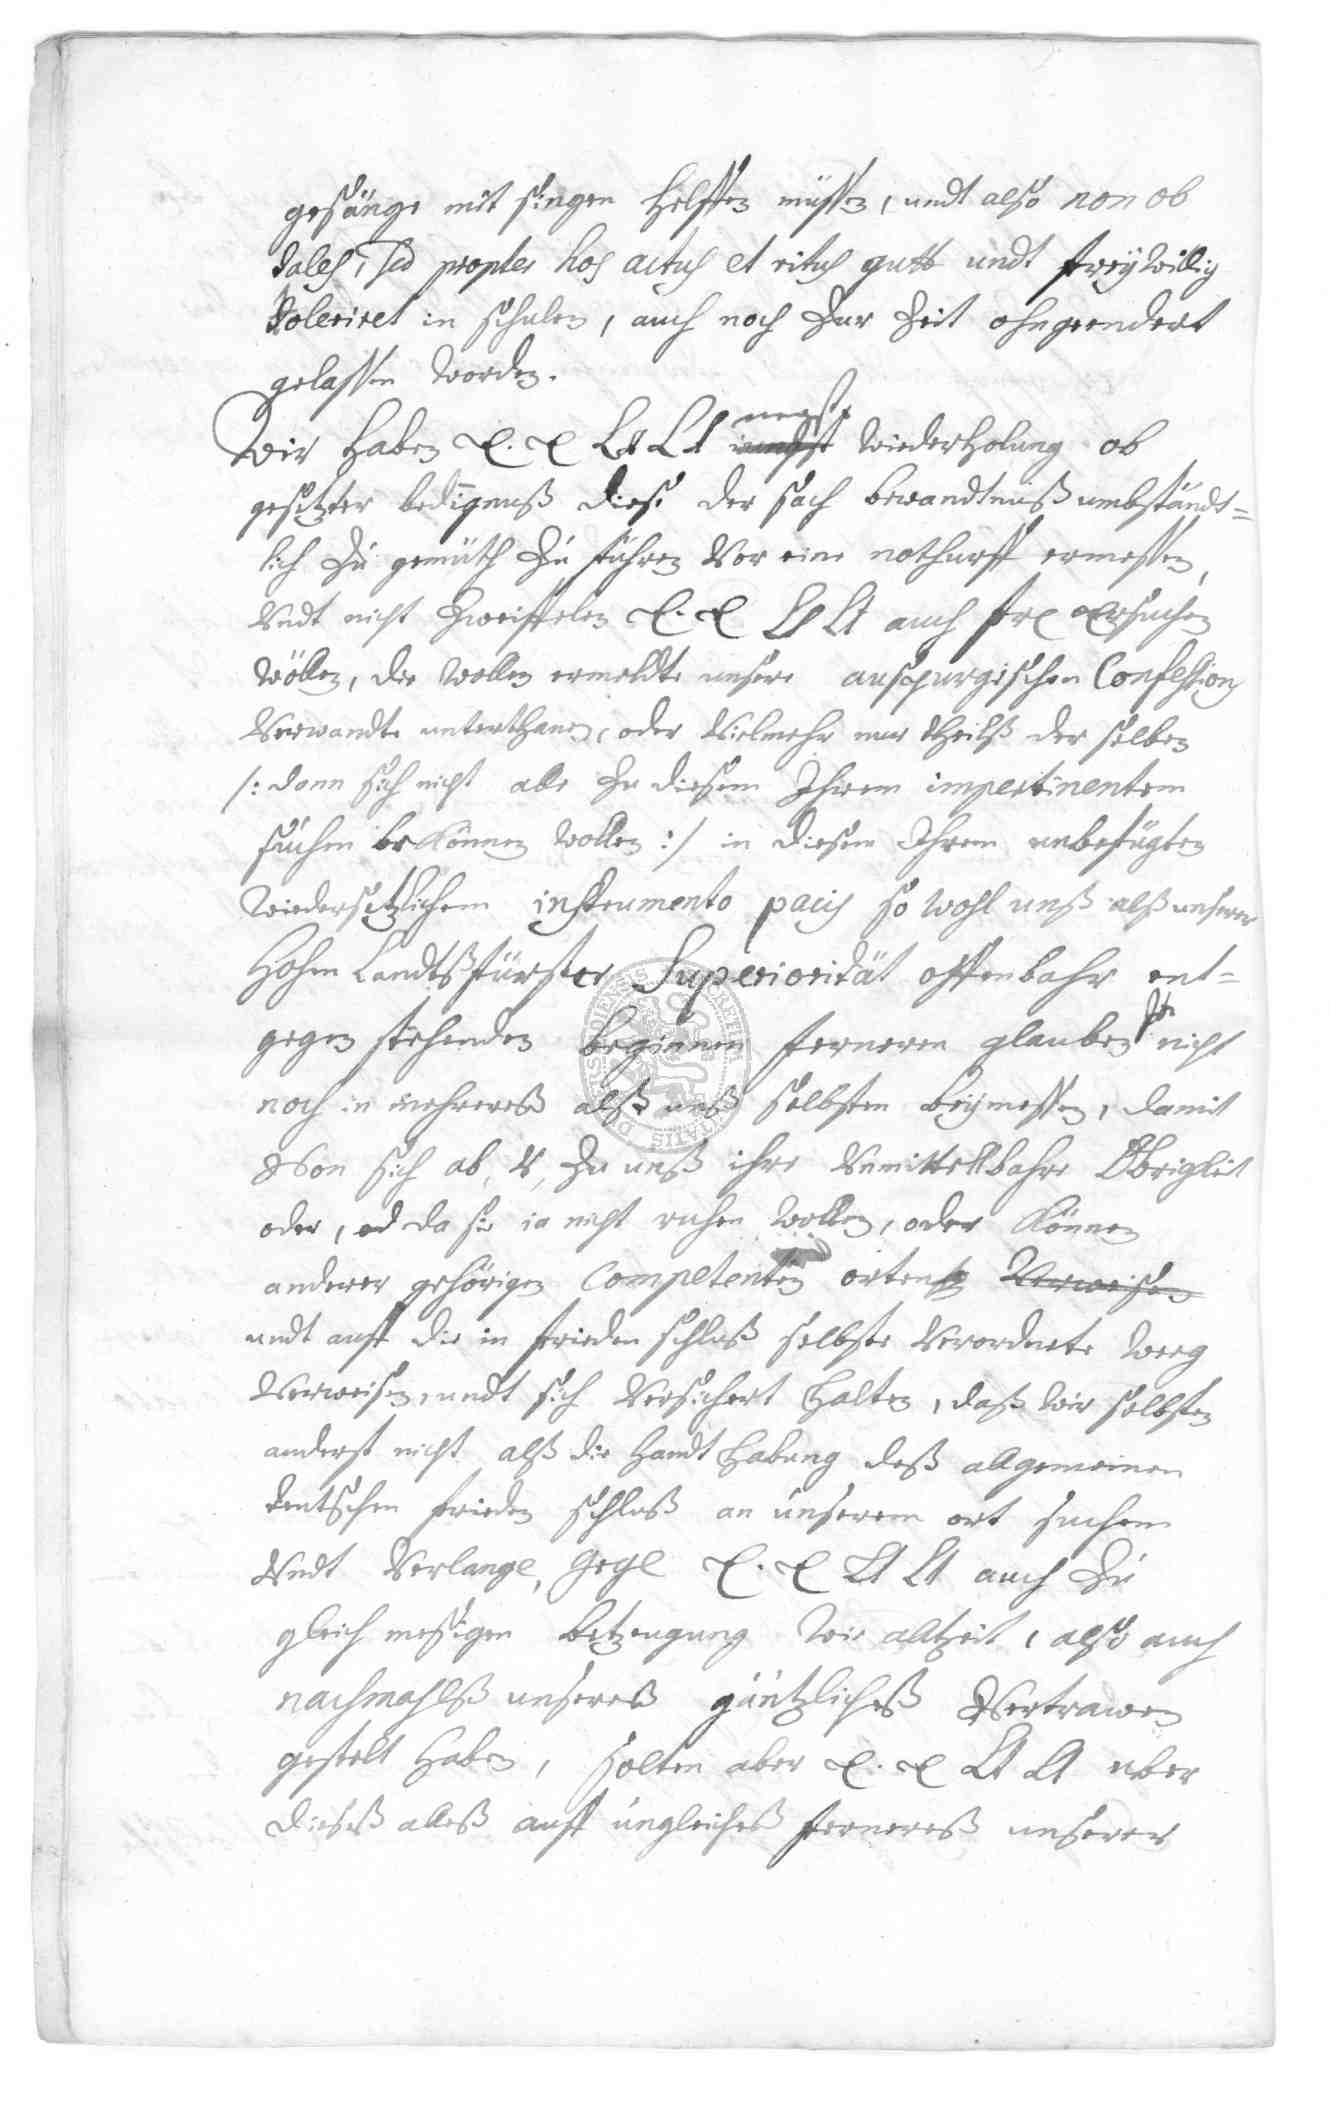 gesänge mit singen helffen müssen, undt also non ob
tales, sed propter hos actus et ritus gutt undt freywillig
toleriret in schulen, auch noch zur Zeit ohngeendert
gelassen worden.
Wir haben E. E Lt Lt negste wiederholung ob
gesetzter bedignuß diese der sach bewandtnuß umbständt=
lich Zu gemüth Zu führen vor eine nothurfft ermessen,
Undt nicht Zweiffelen E. E Lt Lt auch ersuchen
wöllen, die wollen ermeldte unsere auspurgischen Confession
Verwandte unterthanen, oder Vielmehr nur theilß der selben
/: dann sich nicht alle Zu diesem Ihrem impertinentem
suchen bekennen wollen :/ in diesem Ihrem unbefügten
wiedersetzlichem instrumento pacis so wohl unß alß unserer
Hohen Landtsfürster Superiorität offenbahr ent=
gegen stehenden beginnen ferneren glauben nicht
noch in mehrereß alß unß selbsten beymessen, damit
Von sich ab, u, Zu unß ihre Unmittelbahre Obrigkeit
oder, od da sie ja nicht ruhen wollen, oder Können
anderer gehörigen Competenten orten Verweisen
undt auff die in frieden schluß selbste Verordnete weeg
Verweisen, undt sich Versichert halten, daß wir selbsten
anderst nicht alß die Handt habung deß allgemeinen
teutschen frieden schluß an unserem ort suchen
Undt Verlange, E. E Lt Lt auch Zu
gleich messigen betzeugung wie altzeit, also auch
nachmahlß unsereß gäntzlicheß Vertrawen
gestelt haben, solten aber E. E Lt Lt uber
dieseß alleß auff ungleicheß fernereß unserer